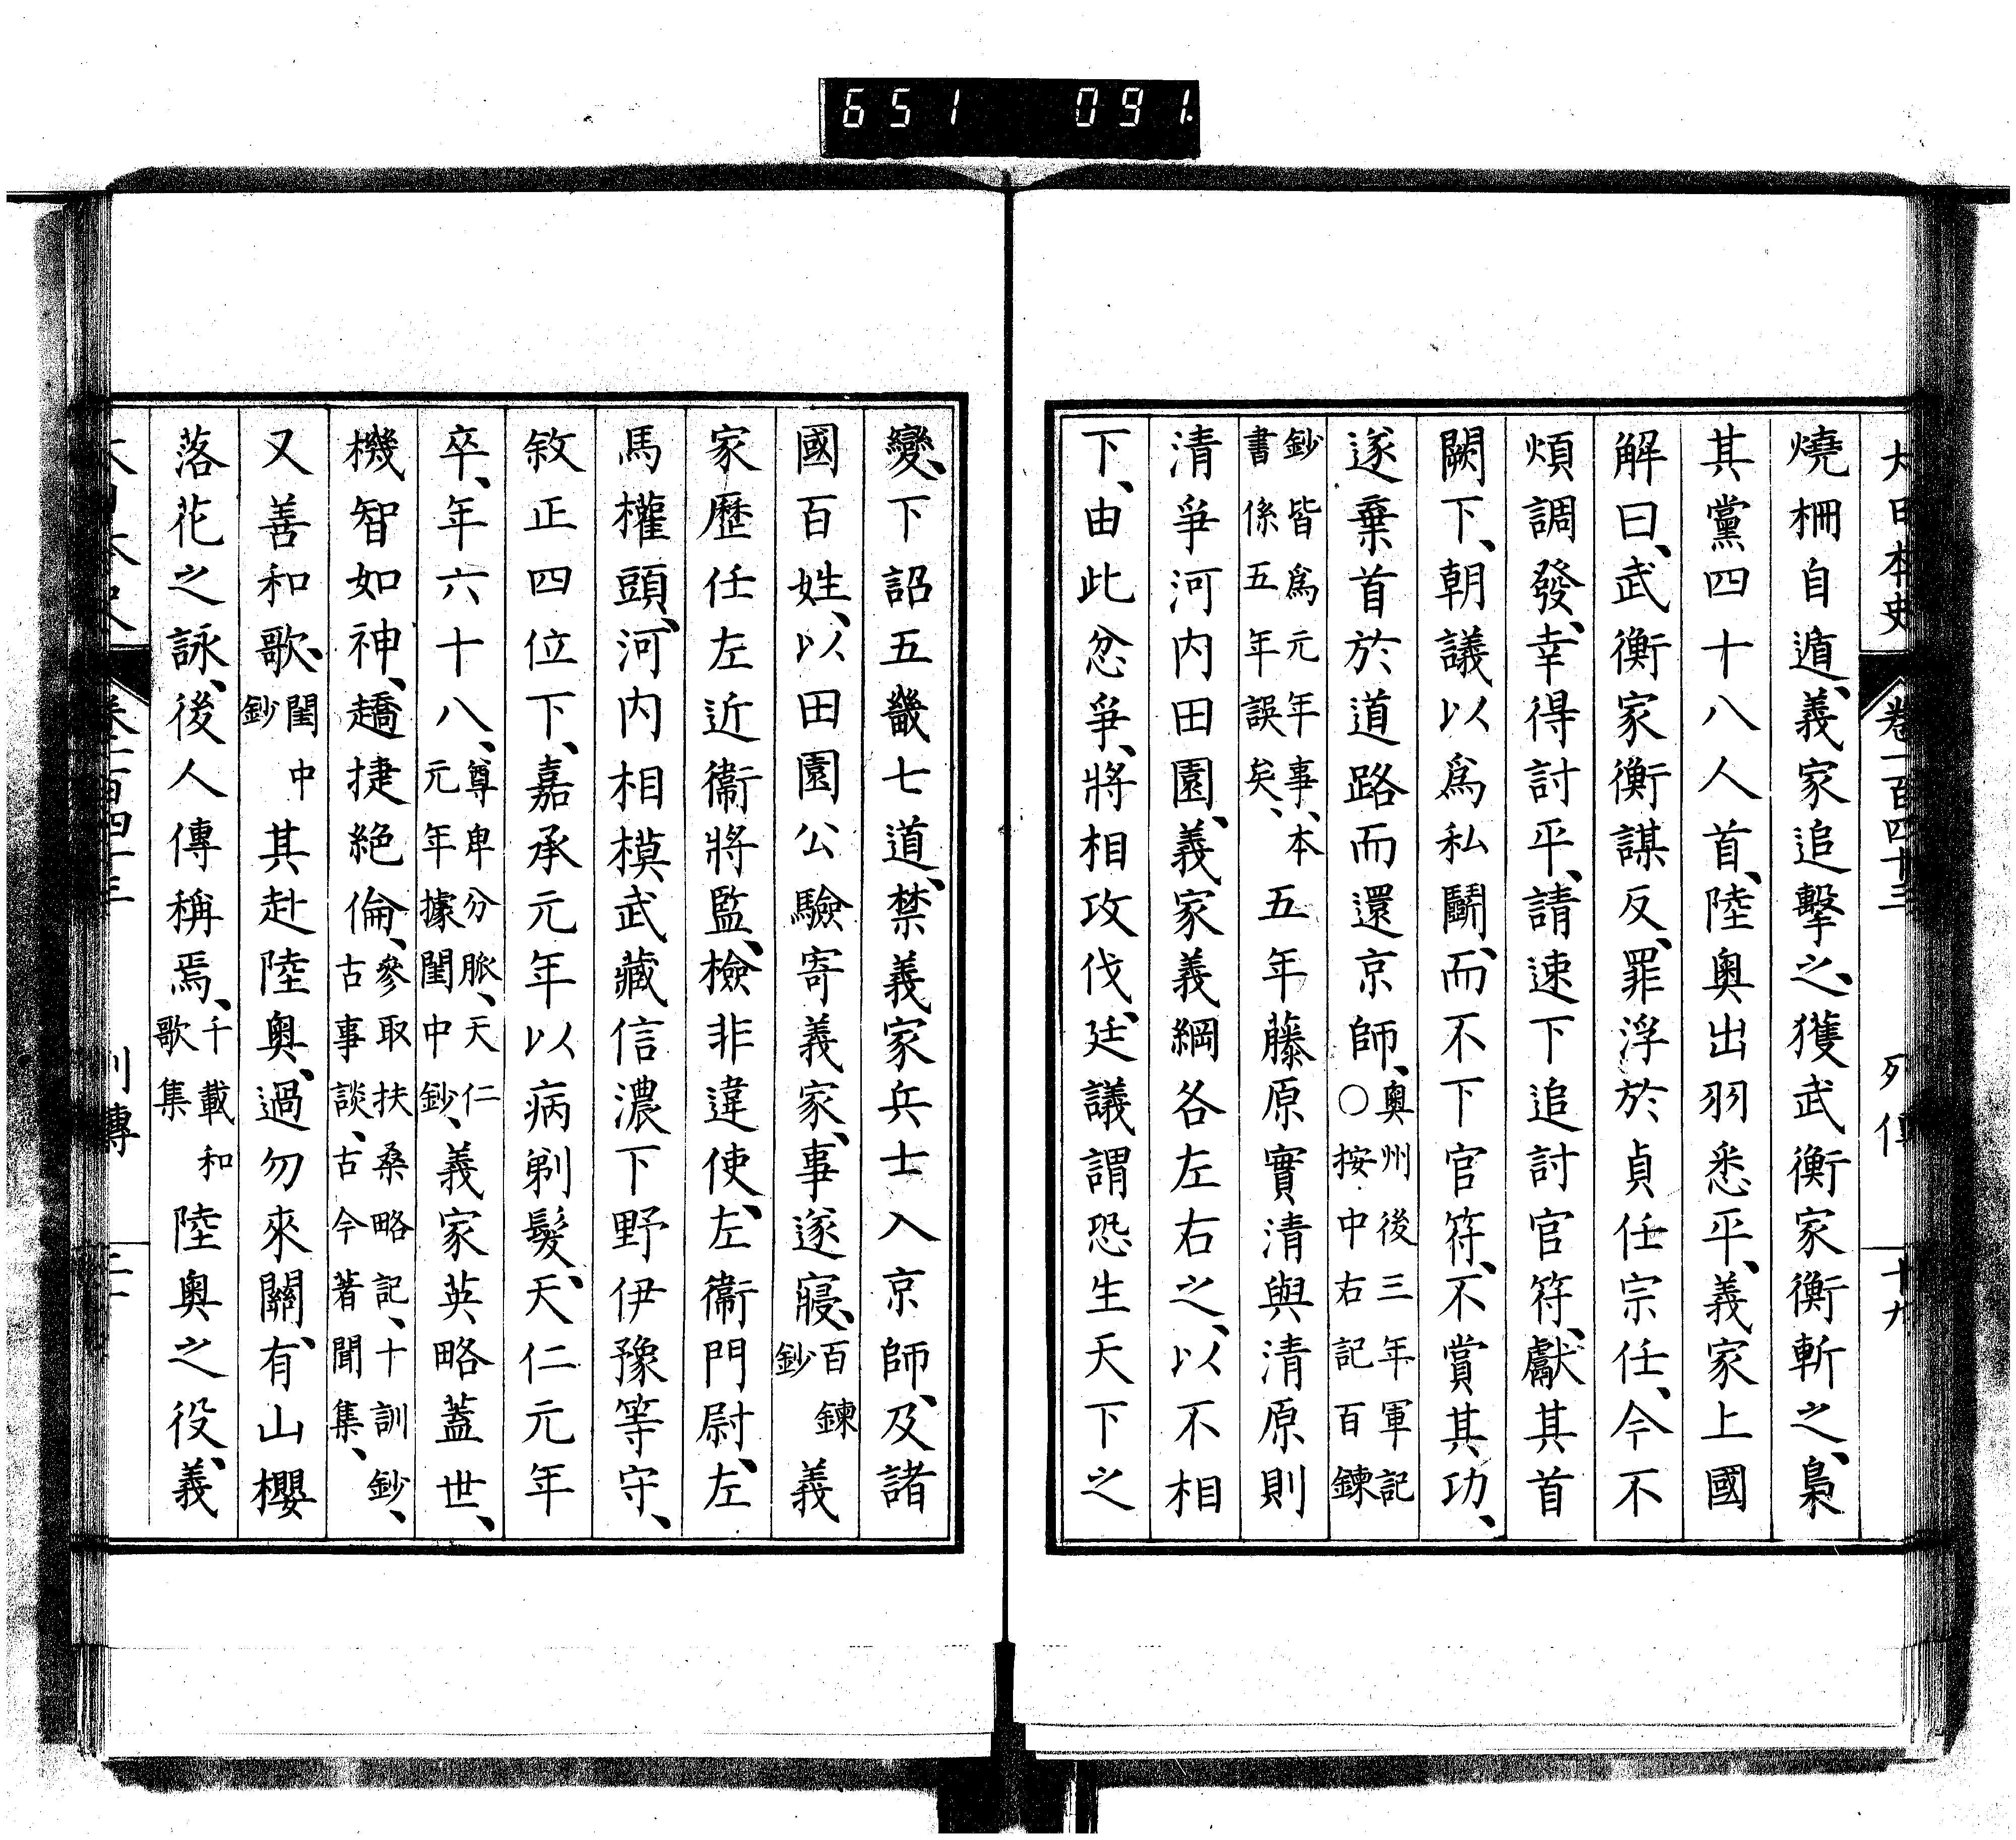 651 091.
大日本史 卷一百四十三 列傳 十九
燒柵自遁、義家追擊之、獲武衡家衡斬之、梟
其黨四十八人首、陸奧出羽悉平、義家上國
解曰、武衡家衡謀反、罪浮於貞任宗任、今不
煩調發、幸得討平、請速下追討官符、獻其首
闕下、朝議以爲私鬭、而不下官符、不賞其功、
遂棄首於道路而還京師、奧州後三年軍記○按中右記百鍊
鈔皆爲元年事、本書係五年誤矣、五年藤原實清與清原則
清爭河内田園、義家義綱各左右之、以不相
下、由此忿爭、將相攻伐、廷議謂恐生天下之
變、下詔五畿七道、禁義家兵士入京師、及諸
國百姓、以田園公驗寄義家、事遂寢、百鍊鈔義
家歷任左近衞將監、檢非違使、左衞門尉、左
馬權頭、河内相模武藏信濃下野伊豫等守、
敘正四位下、嘉承元年以病剃髮、天仁元年
卒、年六十八、尊卑分脈、天仁元年據閏中鈔、義家英略蓋世、
機智如神、趫捷絶倫、參取扶桑略記、十訓鈔、古事談、古今著聞集、
又善和歌、閏中鈔其赴陸奧、過勿來關、有山櫻
落花之詠、後人傳稱焉、千載和歌集陸奧之役、義
大日本史 卷一百四十三 列傳